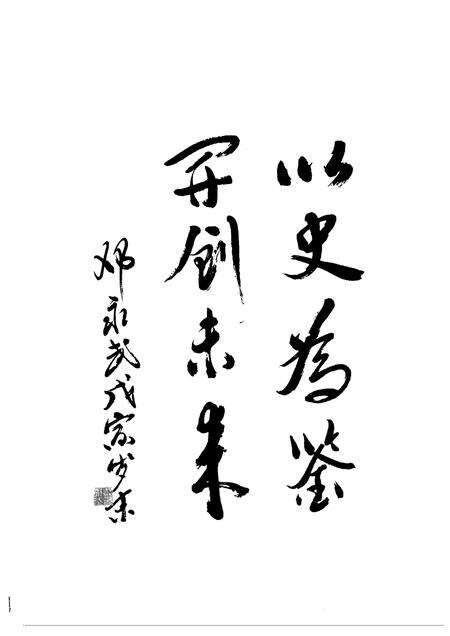 以史為鉴
開创未来
邓永武戊寅岁末